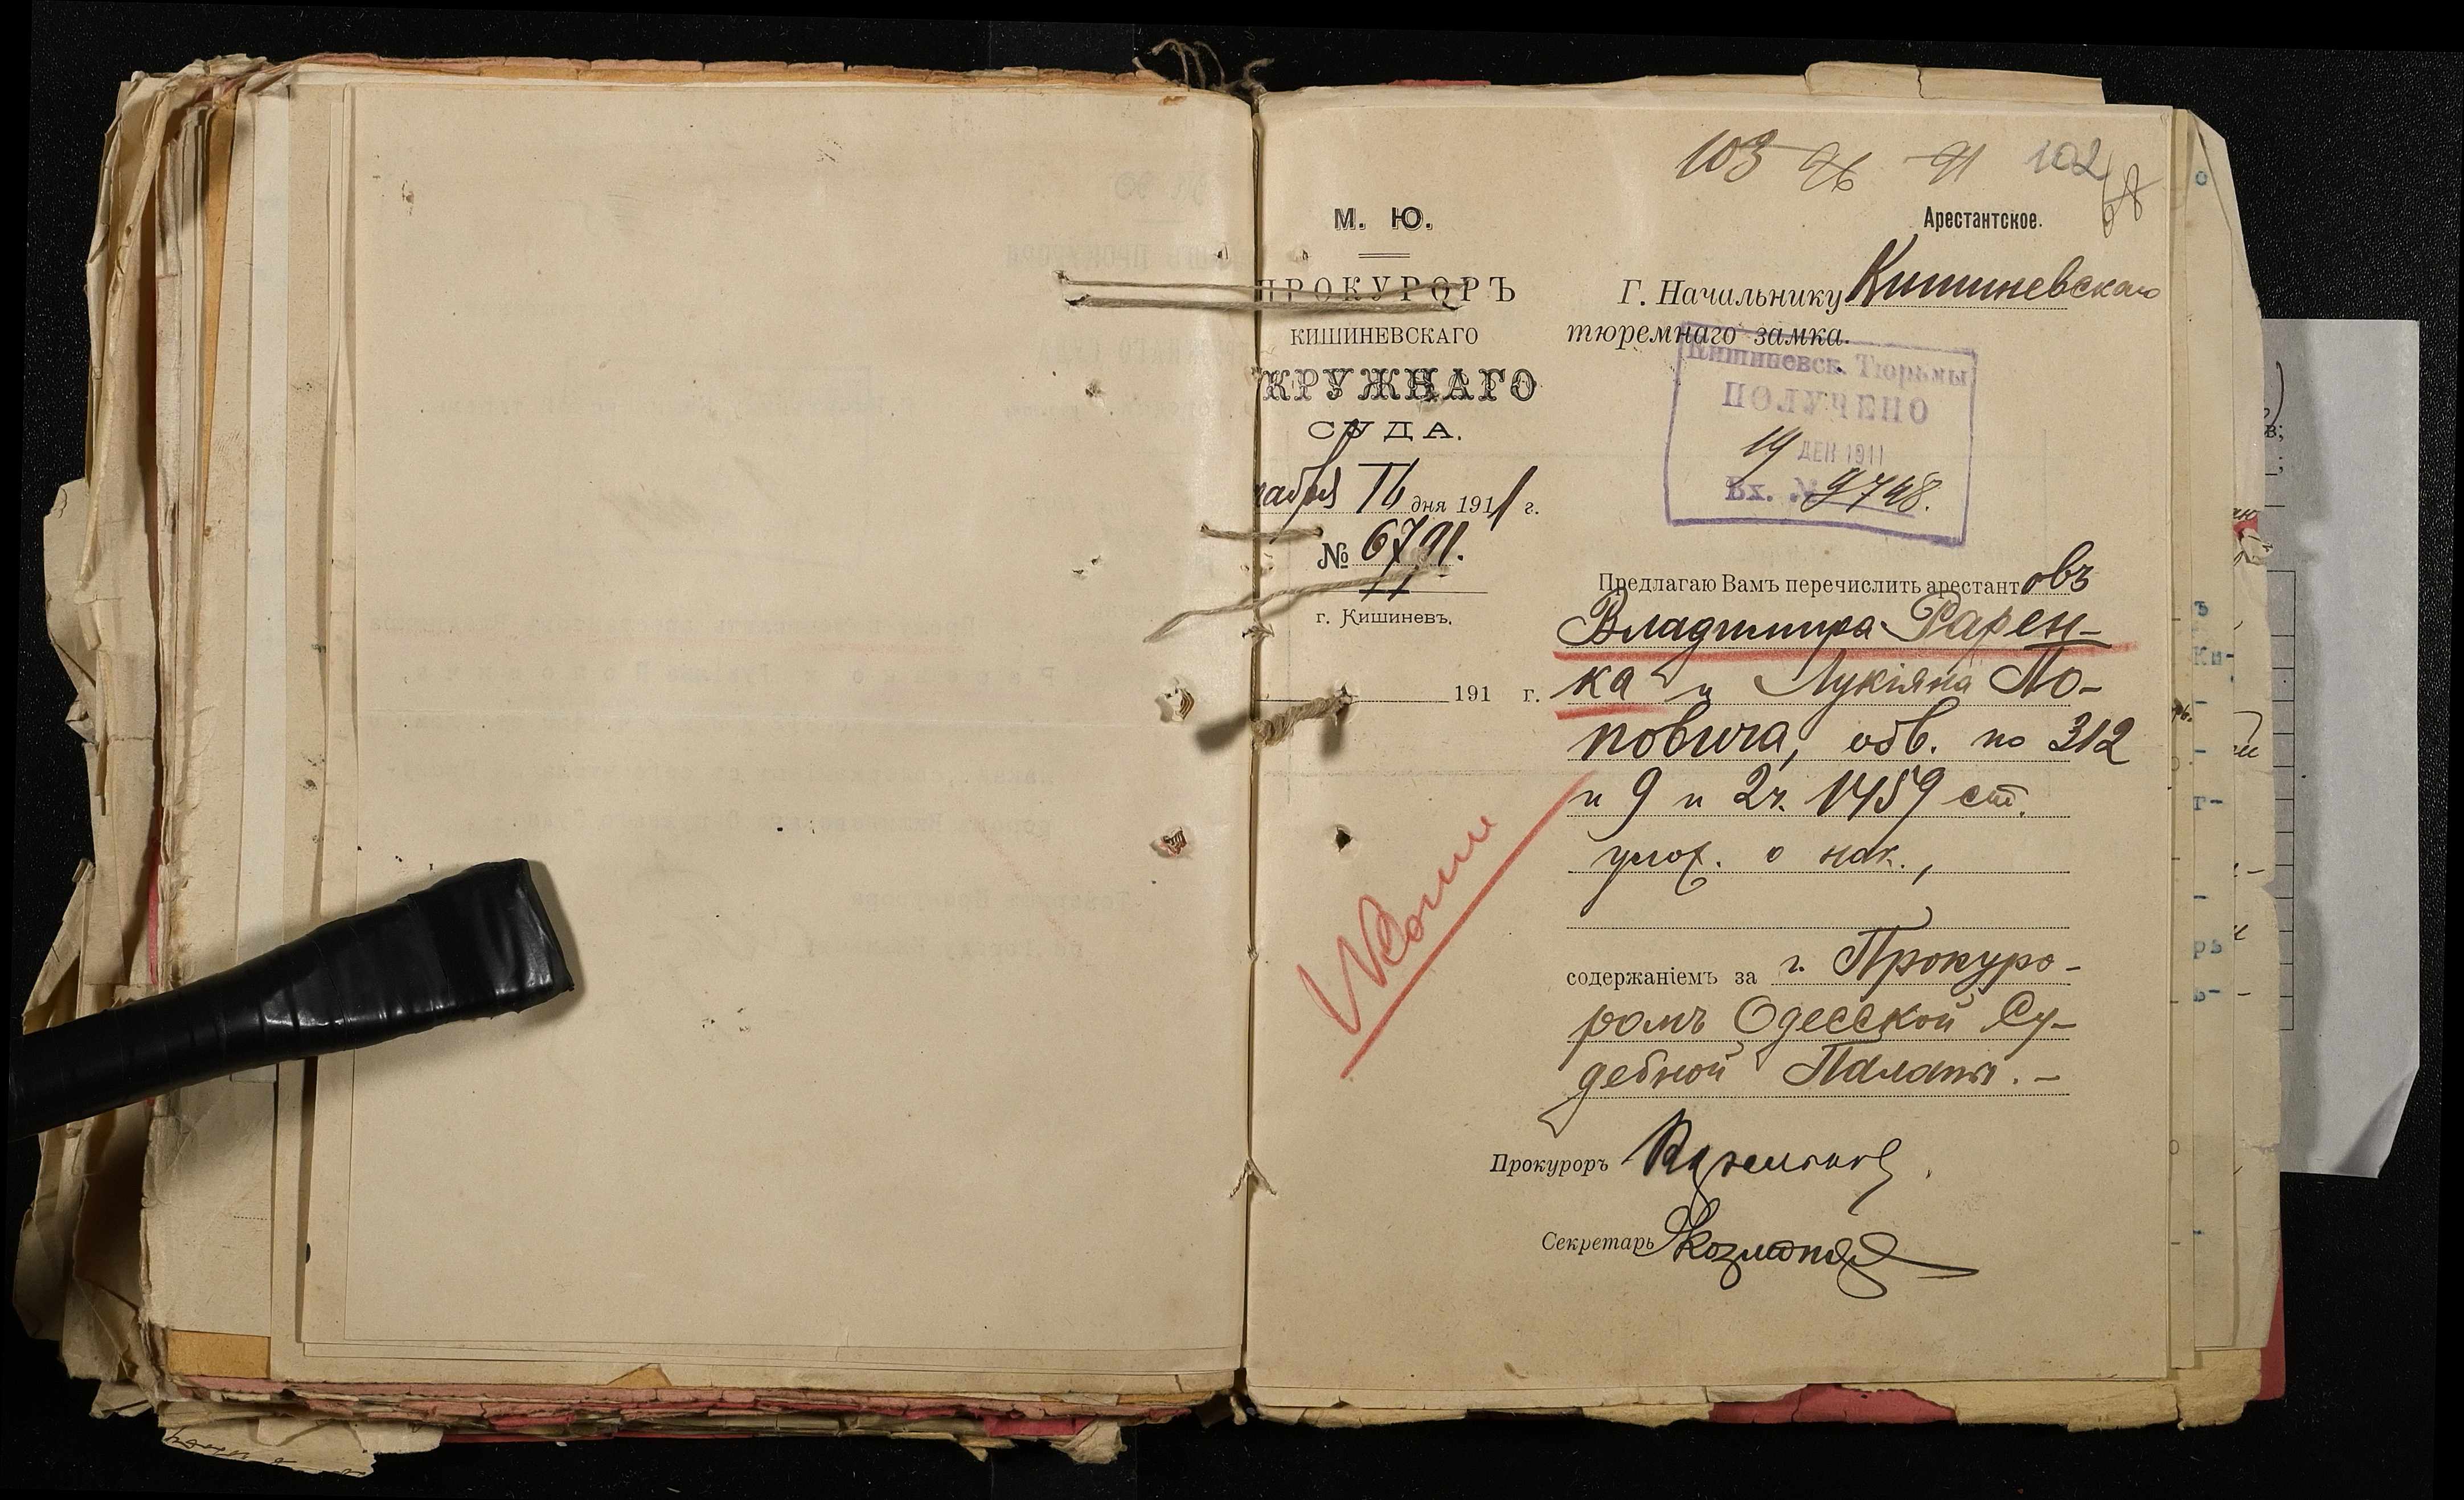 103 96 91 102 68
М. Ю.
Арестантское.
ПРОКУРОРЪ
КИШИНЕВСКАГО
КРУЖНАГО
СУДА.
кабря 16 дня 1911 г.
№ 6791.
г. Кишиневъ.
191 г.
Г. Начальнику Кишиневскаго
тюремнаго замка.
Кишиневск. Тюрьмы
ПОЛУЧЕНО
19 ДЕК 1911
Вх. № 9748.
Предлагаю Вамъ перечислить арестантовъ
Владимира Рарен-
ка и Лукіяна По-
повича, обв. по 312
и 9 и 2 ч. 1459 ст.
улож. о нак.,
содержаніемъ за г. Прокуро-
ромъ Одесской Су-
дебной Палаты. —
Прокуроръ
Секретарь